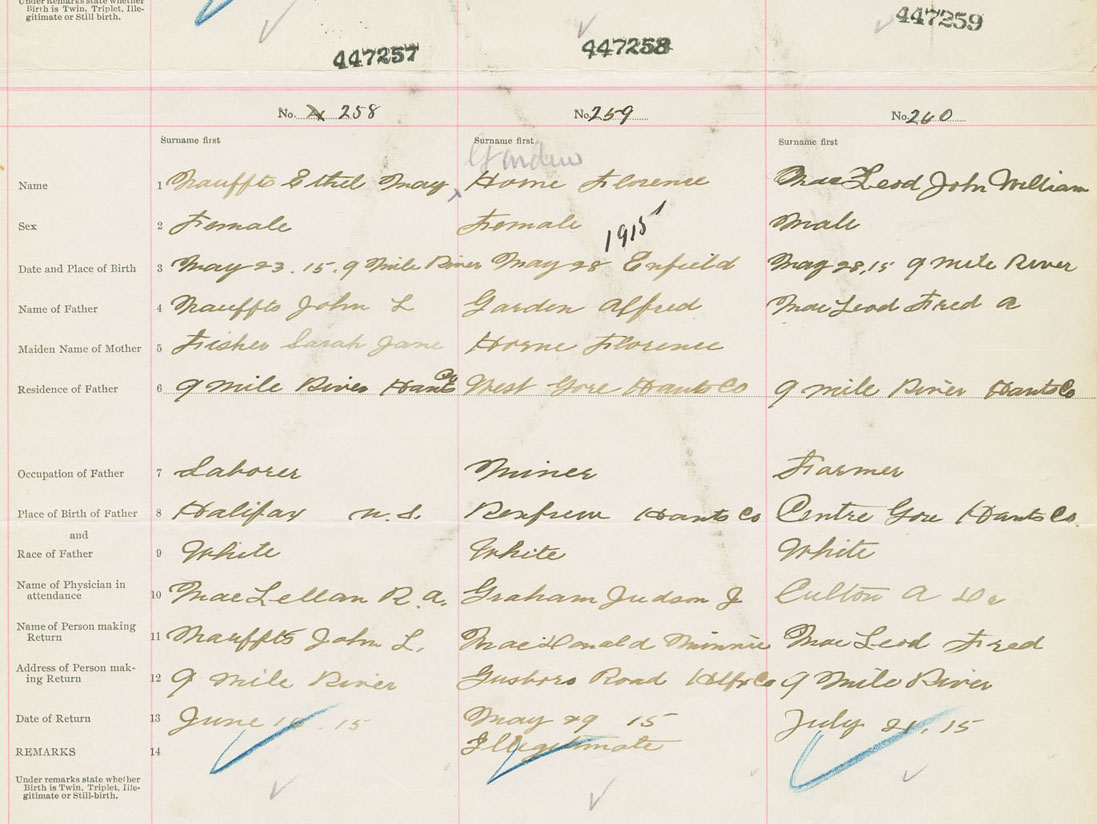 Under Remarks state whether
Birth is Twin, Triplet, Ille-
gitimate or Still birth.
447257 447258 447259
No. 258 No. 259 No. 260
Surname first Surname first Surname first
Garden
Name 1 Nauffts Ethel May Horne Florence MacLeod John William
Sex 2 Female Female Male
1915
Date and Place of Birth 3 May 23.15. 9 Mile River May 28 Enfield May 28, 15 9 Mile River
Name of Father 4 Nauffts John L Garden Alfred MacLeod Fred A
Maiden Name of Mother 5 Fisher Sarah Jane Horne Florence
Residence of Father 6 9 Mile River Hants Co West Gore Hants Co 9 Mile River Hants Co
Occupation of Father 7 Laborer Miner Farmer
Place of Birth of Father 8 Halifax N.S. Renfrew Hants Co Centre Gore Hants Co.
and
Race of Father 9 White White White
Name of Physician in
attendance 10 MacLellan R.A. Graham Judson J Culton A Dr
Name of Person making
Return 11 Nauffts John L. MacDonald Minnie MacLeod Fred
Address of Person mak-
ing Return 12 9 Mile River Road Hlfx Co 9 Mile River
Date of Return 13 June 15 May 29 15 July 21, 15
REMARKS 14 Illegitimate
Under remarks state whether
Birth is Twin, Triplet, Ille-
gitimate or Still-birth.